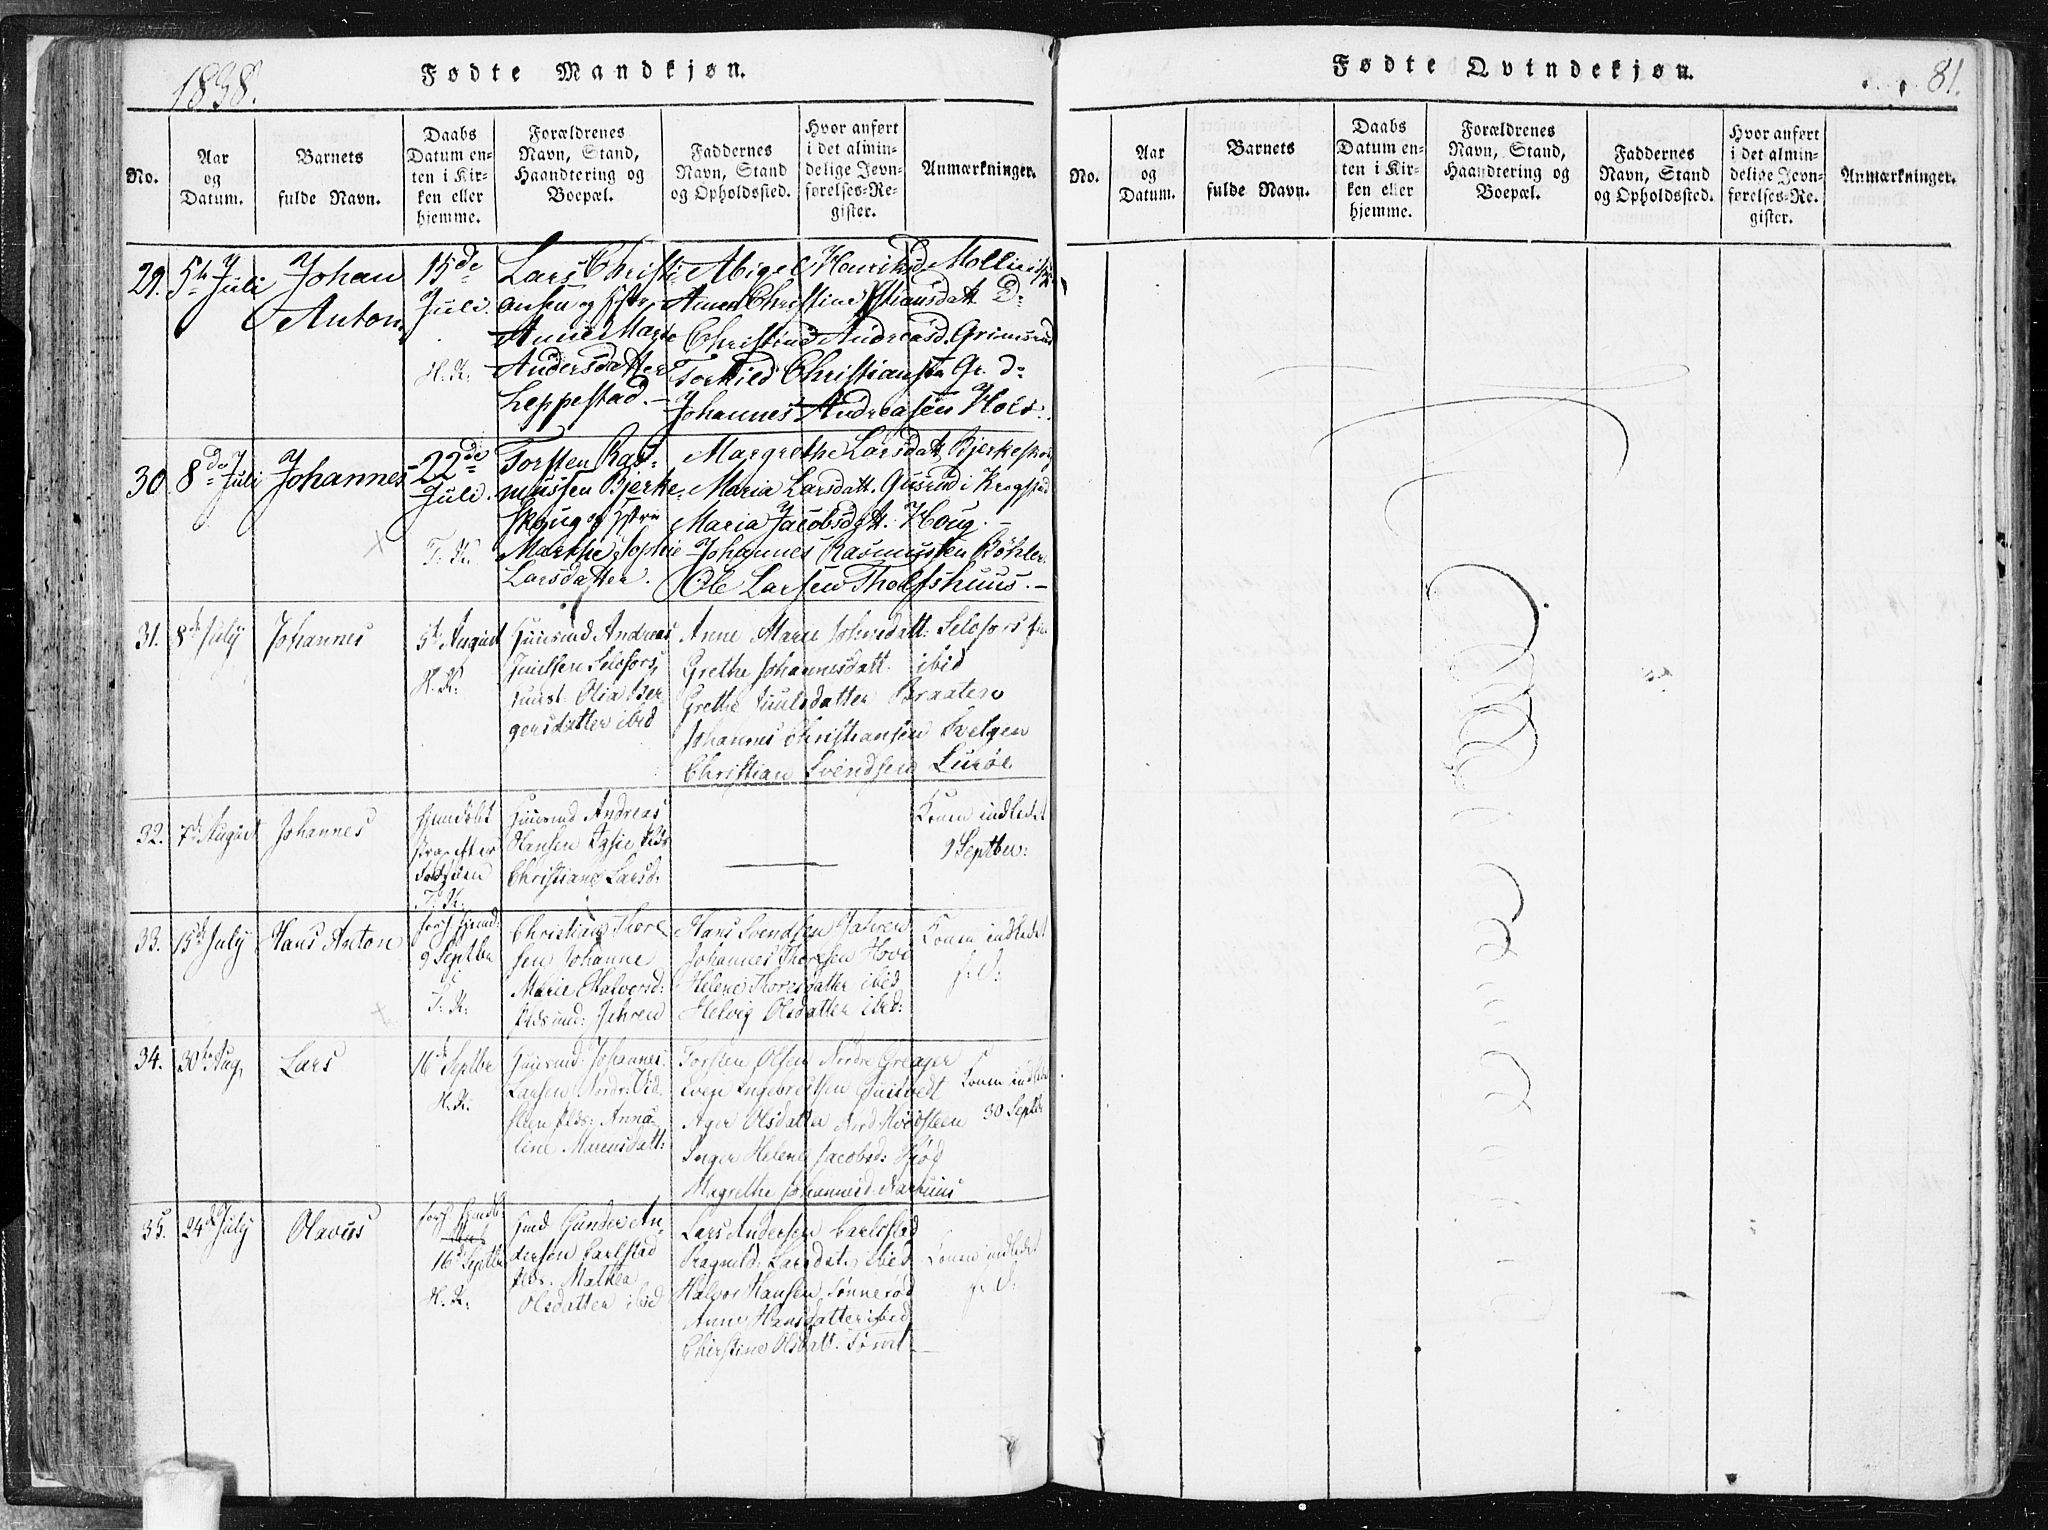 1838.
Fødte Mandkjøn.
No.
Aar
og
Datum.
Barnets
fulde Navn.
Daabs
Datum en-
ten i Kir-
ken eller
hjemme.
Forældrenes
Navn, Stand,
Haandtering og
Boepæl.
Faddernes
Navn, Stand
og Opholdssted.
Hvor anført
i det almin-
delige Jevn-
førelses-Re-
gister.
Anmærkninger.
29.
5te Juli
Johan
Anton
15de
Juli.
H. K.
Lars Christi-
ansen og Hstr
Anne Marie
Andersdatter
Leppestad. —
Abigel Henriksd. Mollie
Anne Christine Christiansdatt D-
Christine Andreasd. Grimsrud
Torkild Christiansen Gr. d-
Johannes Andreasen Hols
30.
8de Juli
Johannes
22de
Juli.
T. K.
Torsten Ras-
mussen Bjerke-
skoug og Hstru
Marthe Sophie
Larsdatter.
Margrethe Larsdatt Bjerkeskoug
Maria Larsdatt. Gusrud i Krogstad
Maria Jacobsdatt. Houg. —
Johannes Rasmussen Bøhler
Ole Larsen Tholfshuus. —
31.
8de July
Johannes
5te August
H. K.
Huusmd Andreas
Juulsen Selofors
Hust. Olia Ber-
gersdatter ibid
Anne Marie Johnsdatt: Selofors
Grethe Johannesdatt. ibid
Grethe Juulsdatter Braaten
Johannes Christiansen Svelgen
Christian Svendsen Lurøe
32.
7de August
Johannes
Hjemdøbt
strax efter
Fødselen
T. K.
Huusmd Andreas
Hansen
Christiane Larsd.
Konen indledet
9 Septber:
33.
15de July
Hans Anton
9 Septbr
i
T. K.
Christian Thore
sen Johanne
Marie Halvorsd:
Jahren
Hans Svendsen Jahren
Johannes Thoresen Hovi
Helene Thoresdatter ibid
Helvig Olsdatter ibid:
Konen indledet
s: D:
34.
30te Aug.
Lars
16de Septbr
H. K.
Huusmd: Johannes
Larsen Nordre Vid
steen Anna
line Marcusdatt:
Torsten Olsen Nordre Greager
Even Ingebretsen
Ager Olsdatter Nord Hvidsteen
Inger Helene Jacobsd:
Magrethe Johannesd:
Konen indledet
30 Septbr
35.
24de July
Olavus
16de Septbr
H. K.
Gunder An-
dersen Carlstad
Mathea
Olsdatter ibid
Lars Andersen Carlstad
Ragnild Larsdat, ibid
Halvor Hansen Tønnerød
Anne Hansdatter ibid
Christine Olsdatt.
Konen indledet
s: D:
Fødte Qvindekjøn.
81.
No.
Aar
og
Datum.
Barnets
fulde Navn.
Daabs
Datum en-
ten i Kir-
ken eller
hjemme.
Forældrenes
Navn, Stand,
Haandtering og
Boepæl.
Faddernes
Navn, Stand
og Opholdssted.
Hvor anført
i det almin-
delige Jevn-
førelses-Re-
gister.
Anmærkninger.